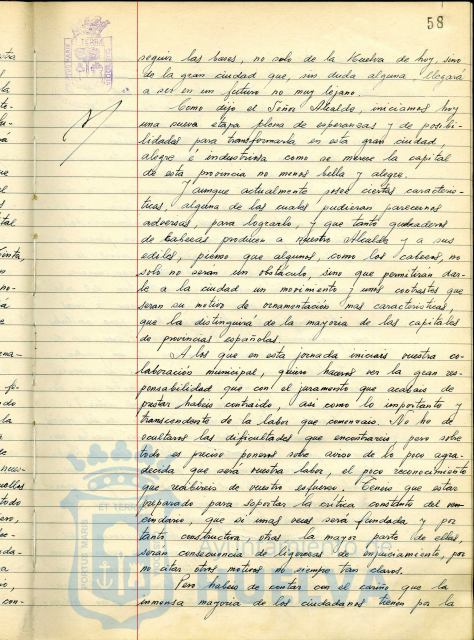 58
seguir las bases, no solo de la Huelva de hoy, sino
de la gran ciudad que, sin duda alguna llegará
a ser en un futuro no muy lejano.
Como dijo el Señor Alcalde, iniciamos hoy
una nueva etapa plena de esperanzas y de posibi-
lidades para transformarla en esta gran ciudad,
alegre é industriosa como se merece la capital
de esta provincia no menos bella y alegre.
Y aunque actualmente posee ciertas caracterís-
ticas, alguna de las cuales pudieran parecernos
adversas, para lograrlo, y que tanto quebraderos
de cabezas producen a nuestro Alcalde y a sus
ediles, pienso que algunos, como los cabezos, no
solo no seran un obstáculo, sino que permitirán dar-
le a la ciudad un movimiento y unos contrastes que
seran su motivo de ornamentación mas característica,
que la distinguirá de la mayoria de las capitales
de provincias españolas.
A los que en esta jornada iniciais vuestra co-
laboración municipal, quiero haceros ver la gran res-
ponsabilidad que con el juramento que acabais de
prestar habeis contraido, asi como lo importante y
transcendente de la labor que comenzais. No he de
ocultaros las dificultades que encontrareis, pero sobre
todo es preciso poneros sobre aviso de lo poco agra-
decida que será vuestra labor, el poco reconocimiento
que recibireis de vuestro esfuerzo. Teneis que estar
preparado para soportar la crítica constante del ve-
cindario, que si unas veces será fundada y por
tanto constructiva otras la mayor parte de ellas,
serán consecuencia de ligerezas de enjuiciamiento, por
no citar otros motivos no siempre tan claros.
Pero habeis de contar con el cariño que la
inmensa mayoria de los ciudadanos tienen por la